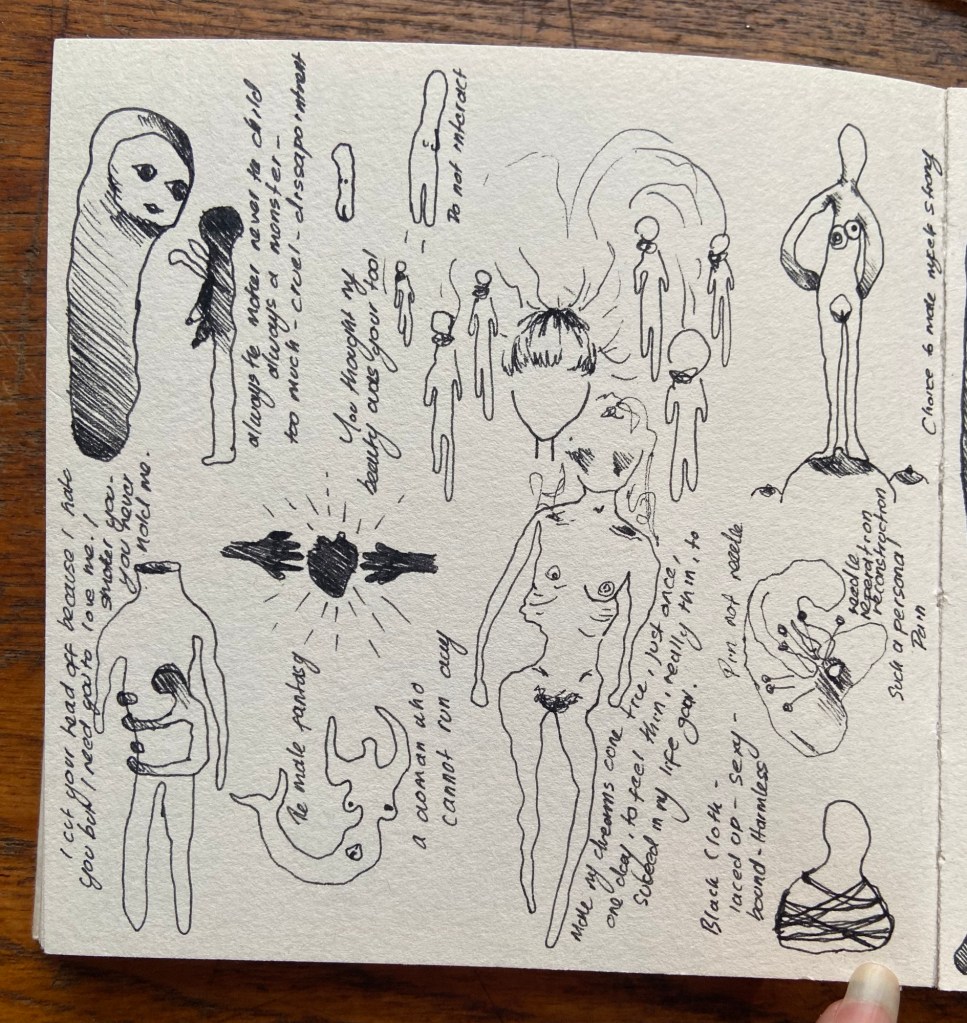 I cut your head off because I hate
you but I need you to love me. I
smoter you-
you never
hold me.
always te moter never te child
always a monster -
too much - cruel - dissapointment
You thought my
beauty was your tool
Do not interact
Te male fantasy
a woman who
cannot run away
Make my dreams come true, just once,
one day, to feel thin, really thin, to
suceed in my life goal.
Black Cloth -
laced up - sexy -
bound - Harmless
Pin not needle
needle
reperation
reconstruction
Such a personal
Pain
Chance to make myself strong